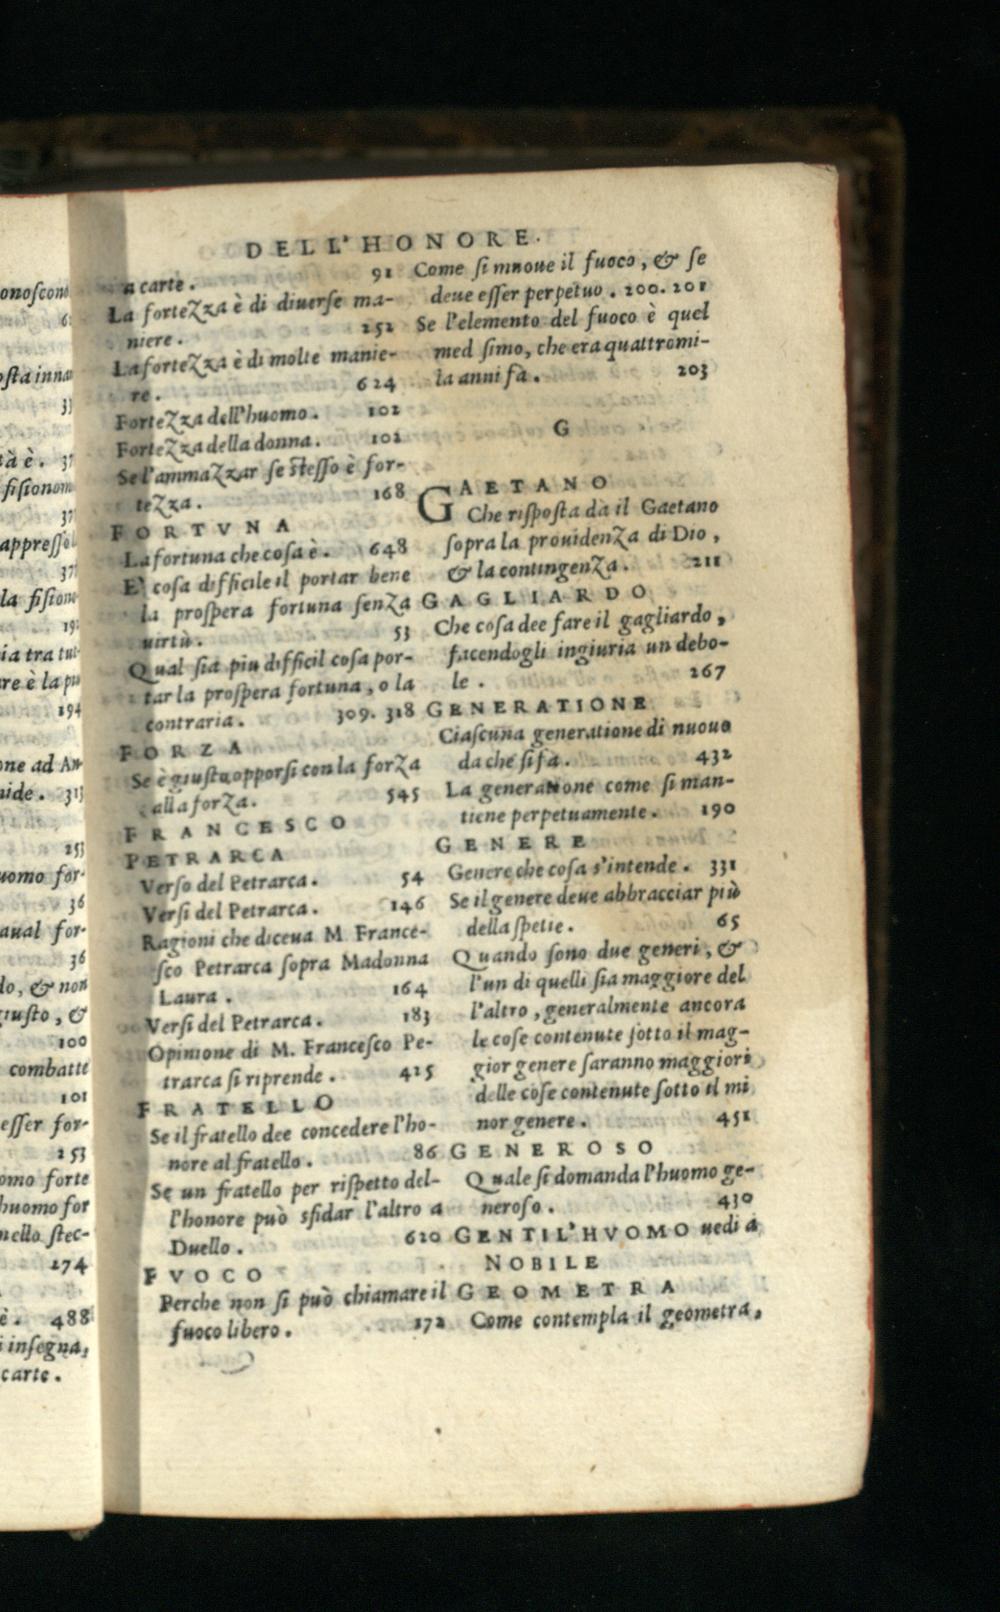 DELL'HONORE.
a carte. 91
La forteZza è di diuerse ma-
niere. 252
La forteZza è di molte manie-
re. 624
ForteZza dell'huomo. 102
ForteZza della donna. 102
Se l'ammaZzar se stesso è for-
teZza. 168
FORTVNA
La fortuna che cosa è. 648
E' cosa difficile il portar bene
la prospera fortuna senZa
uirtù. 53
Qual sia piu difficil cosa por-
tar la prospera fortuna, o la
contraria. 309. 318
FORZA
Se è giusto opporsi con la forZa
alla forZa. 545
FRANCESCO
PETRARCA
Verso del Petrarca. 54
Versi del Petrarca. 146
Ragioni che diceua M France-
sco Petrarca sopra Madonna
Laura. 164
Versi del Petrarca. 183
Opinione di M. Francesco Pe-
trarca si riprende. 425
FRATELLO
Se il fratello dee concedere l'ho-
nore al fratello. 86
Se un fratello per rispetto del-
l'honore può sfidar l'altro a
Duello. 620
FVOCO
Perche non si può chiamare il
fuoco libero. 172
Come si mnoue il fuoco, & se
deue esser perpetuo. 200. 201
Se l'elemento del fuoco è quel
med simo, che era quattromi-
la anni fà. 203
G
GAETANO
Che risposta dà il Gaetano
sopra la prouidenZa di Dio,
& la contingenZa. 211
GAGLIARDO
Che cosa dee fare il gagliardo,
facendogli ingiuria un debo-
le. 267
GENERATIONE
Ciascuna generatione di nuouo
da che si fà. 432
La generatione come si man-
tiene perpetuamente. 190
GENERE
Genere che cosa s'intende. 331
Se il genere deue abbracciar più
della spetie. 65
Quando sono due generi, &
l'un di quelli sia maggiore del
l'altro, generalmente ancora
le cose contenute sotto il mag-
gior genere saranno maggiori
delle cose contenute sotto il mi
nor genere. 451
GENEROSO
Quale si domanda l'huomo ge-
neroso. 430
GENTIL'HVOMO uedi à
NOBILE
GEOMETRA
Come contempla il geometra,